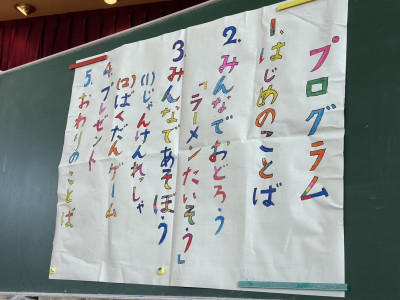 プログラム
1.はじめのことば
2.みんなでおどろう
「ラーメンたいそう」
3.みんなであそぼう
(1)じゃんけんれっしゃ
(2)ばくだんゲーム
4.プレゼント
5.おわりのことば